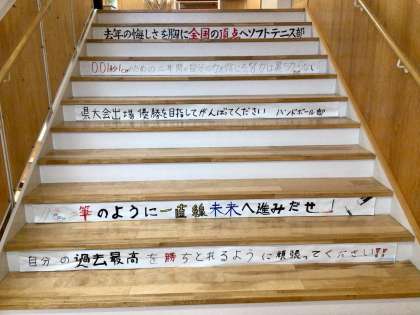 去年の悔しさを胸に全国の頂点へソフトテニス部
県大会出場 優勝を目指してがんばってください ハンドボール部
筆のように一直線未来へ進みだせ！
自分の過去最高を勝ちとれるように頑張ってください!!